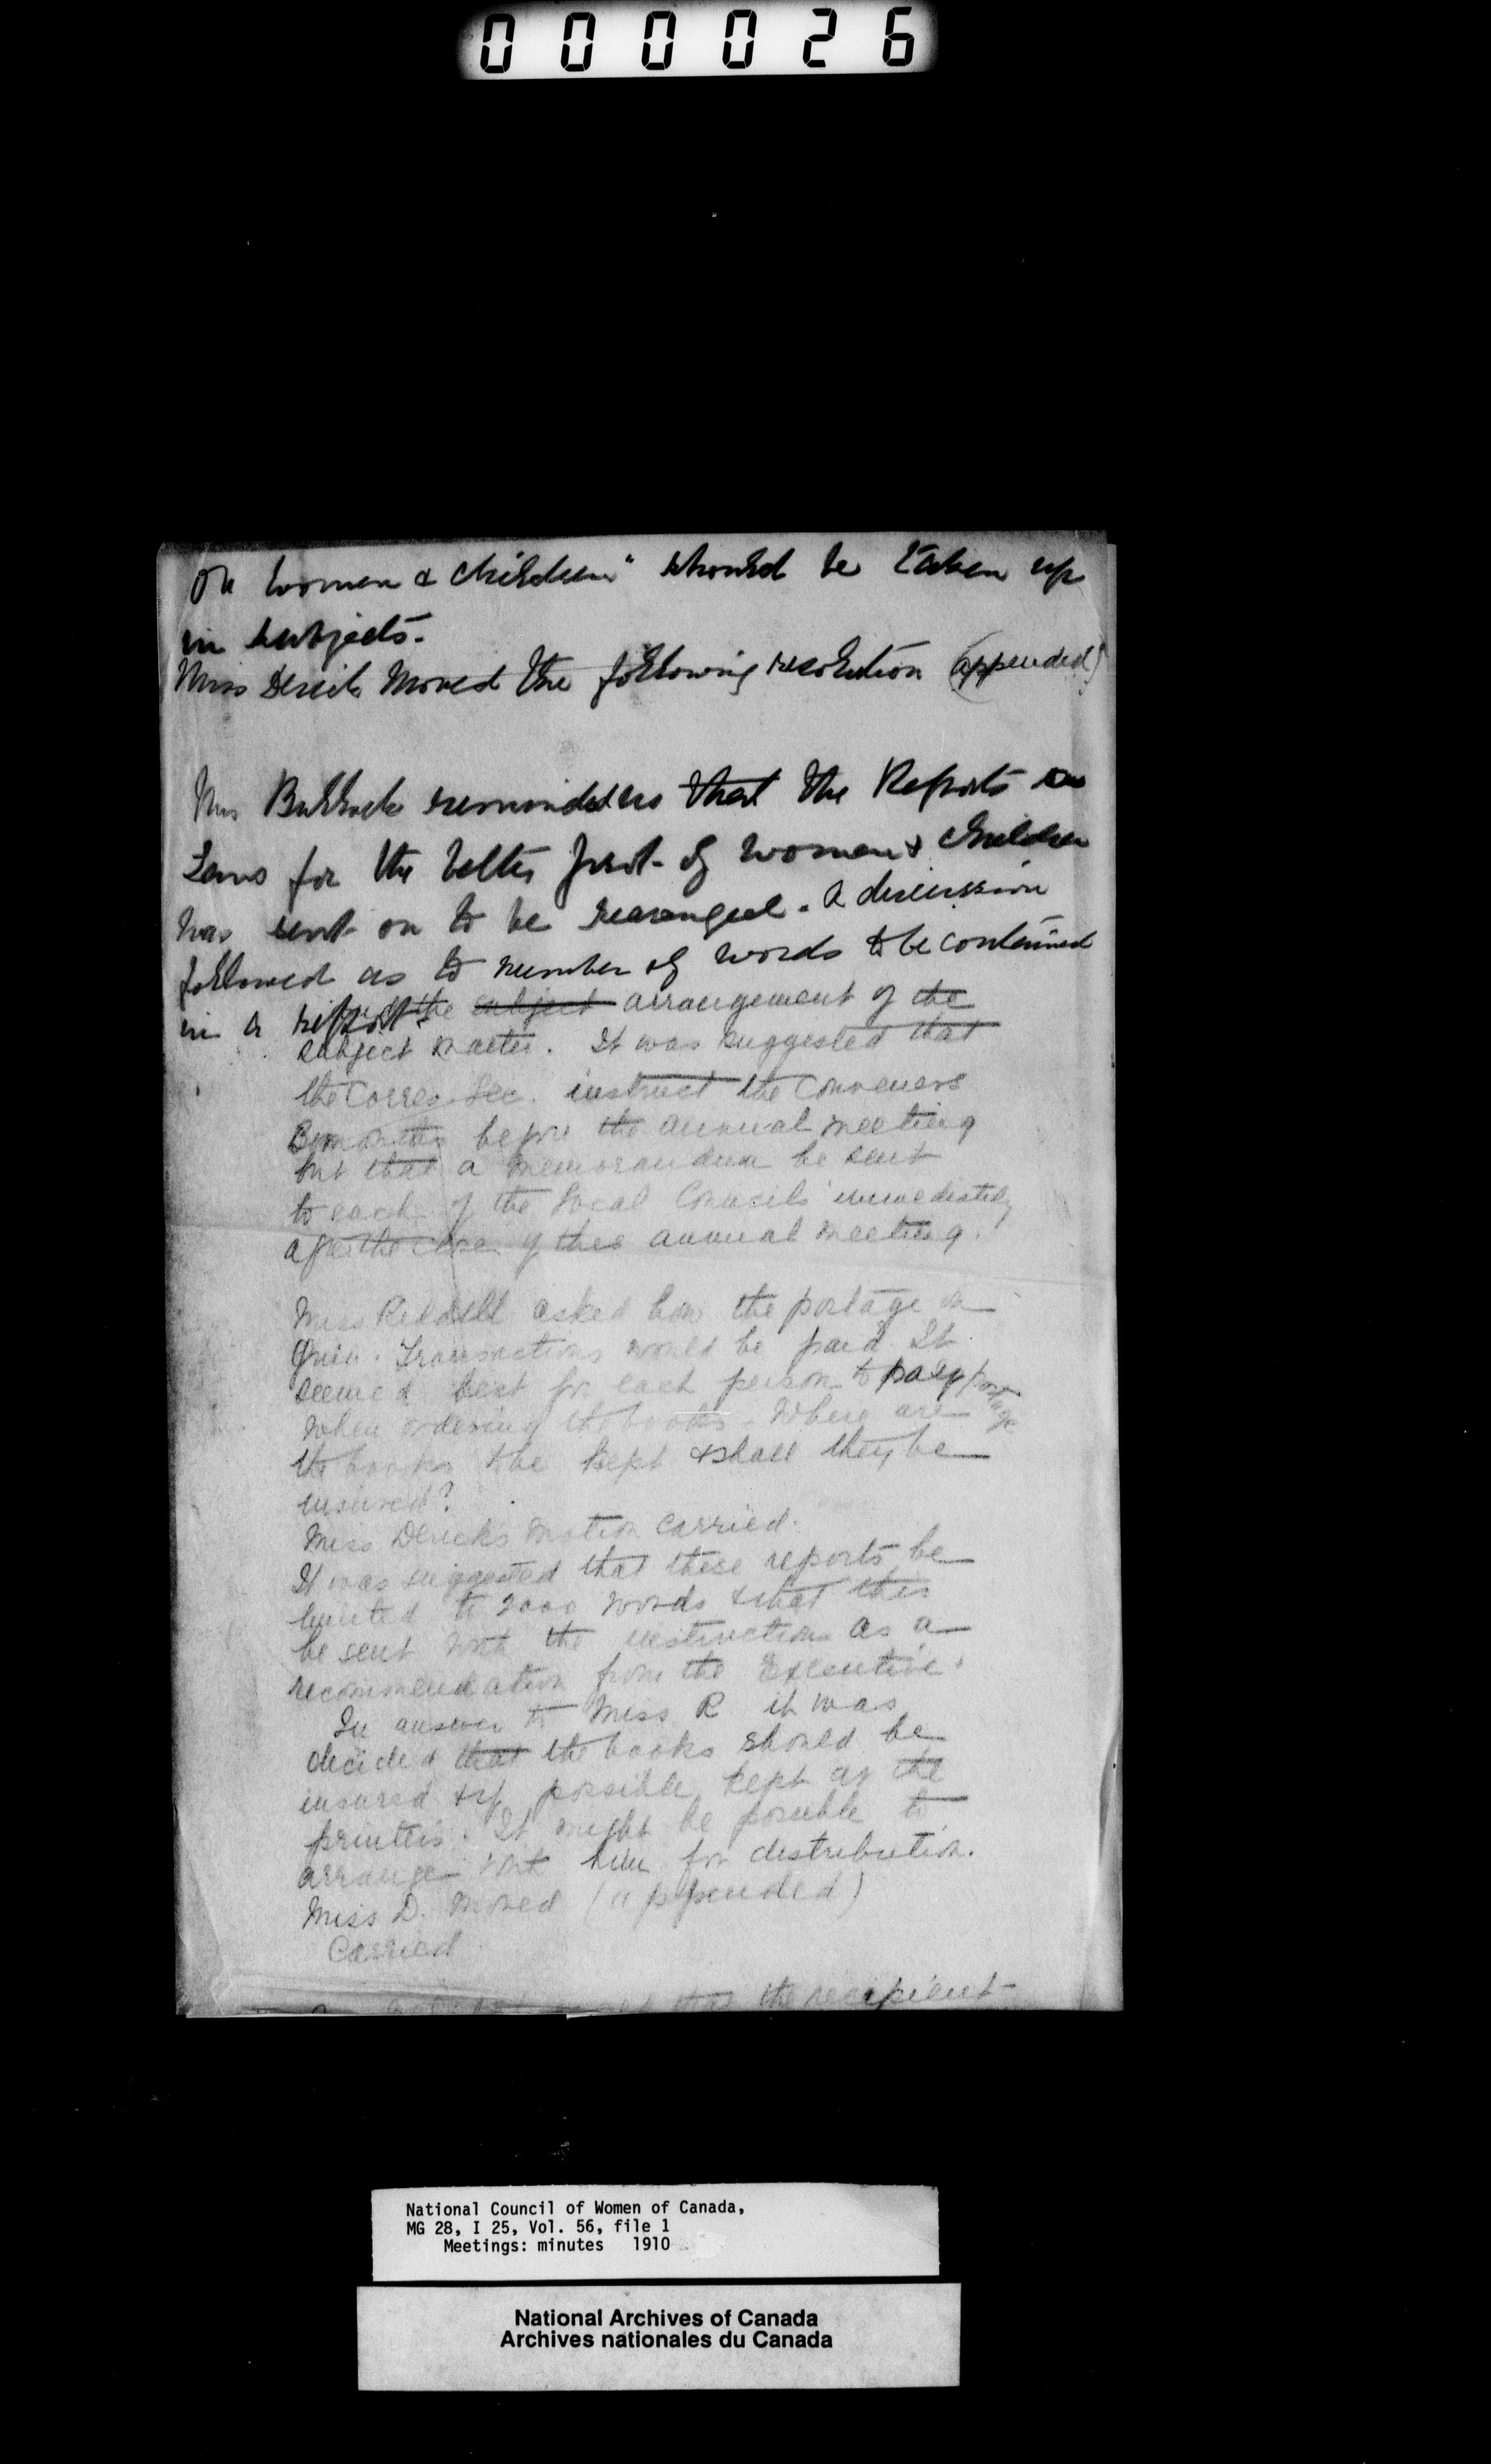 000026
on women & children" should be taken up
in subjects.
Miss Derick moved the following resolution (appended)
Mrs Bullock reminded us that the Reports on
Laws for the better prot. of women & children
was sent on to be rearranged. A discussion
followed as to number of words to be contained
in a report & the subject arrangement of the
subject matter. It was suggested that
the Corres. Sec. instruct the Conveners
3 months before the annual meeting
but that a memorandum be sent
to each of the Local Councils immediately
after the close of this annual meeting.
Miss Riddell asked how the postage on
Quin. Transactions would be paid. It
seemed best for each person to pay postage
when ordering the books. Where are
the books to be kept & shall they be
insured?
Miss Dericks motion carried.
It was suggested that these reports be
limited to 2000 words & that this
be sent with the instructions as a
recommendation from the Executive.
In answer to Miss R it was
decided that the books should be
insured & if possible kept at the
printers. It might be possible to
arrange with him for distribution.
Miss D. moved (appended)
Carried
that the recipient
National Council of Women of Canada,
MG 28, I 25, Vol. 56, file 1
Meetings: minutes 1910
National Archives of Canada
Archives nationales du Canada